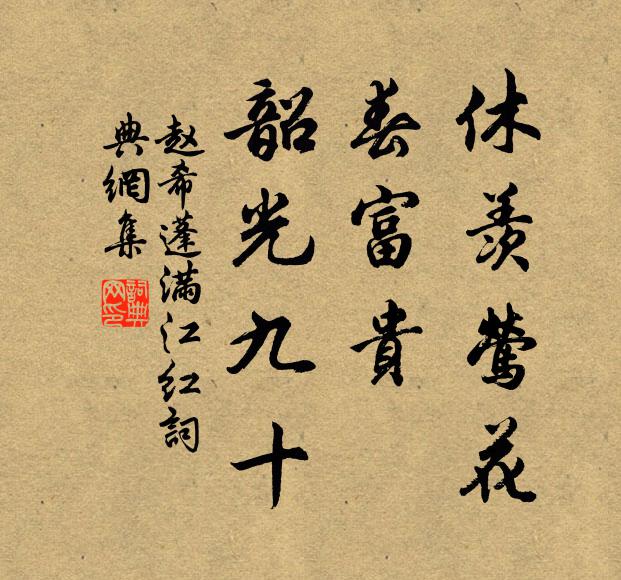 休羡莺花
春富貴
韶光九十
赵希蓬满江红詞
典網集
詞典網印